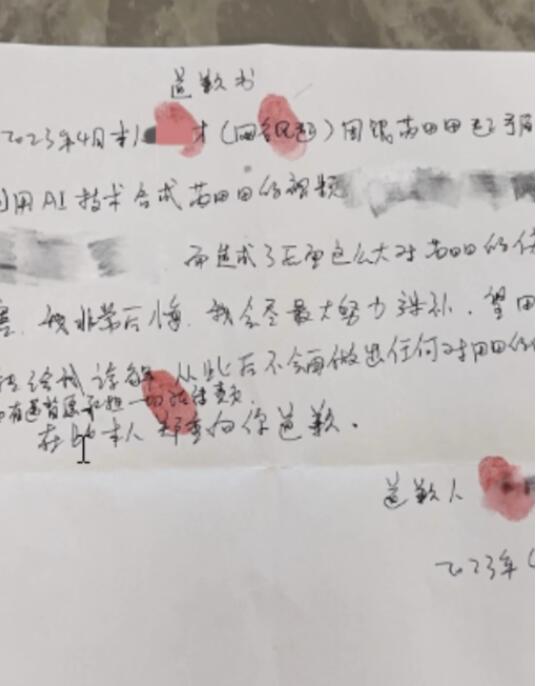 道歉书
2023年4月本人 才(网名 )因跟苏田田
利用AI技术合成苏田田的视频
而造成了后面这么大对苏田田的伤
害,我非常后悔,我会尽最大努力弥补,望田
给我谅解 从此后不会再做出任何对田田的
如有违背愿承担一切法律责任.
在此本人郑重向你道歉.
道歉人
2023年